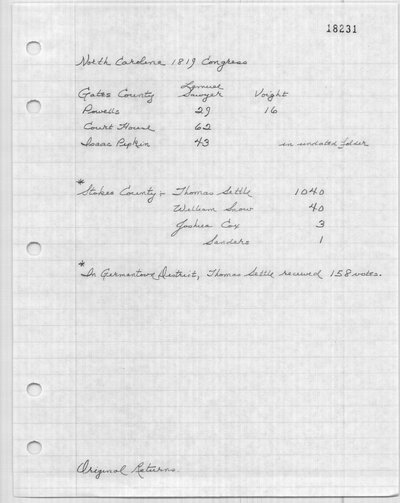 18231
North Carolina 1819 Congress
Gates County Lemuel Sawyer Voight
Powells 29 16
Court House 62
Isaac Pipkin 43 in undated folder
* Stokes County - Thomas Settle 1040
William Snow 40
Joshua Cox 3
Sanders 1
* In Germantown District, Thomas Settle received 158 votes.
Original Returns